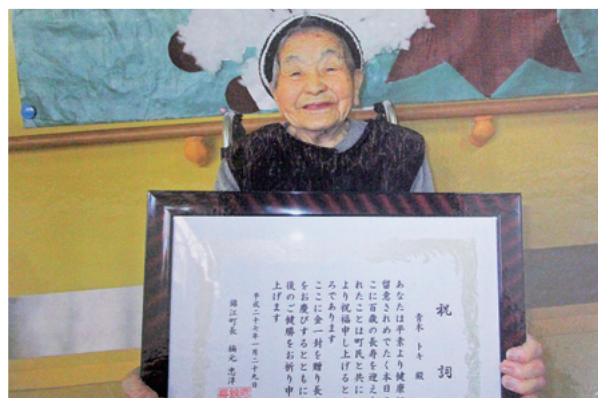 祝詞
青木 トキ 殿
あなたは平素より健康
留意されめでたく本日
こに百歳の長寿を迎え
れたことは町民と共に
より祝福申し上げると
ろであります
ここに金一封を贈り長
をお慶びするとともに
後のご健勝をお祈り申
上げます
平成二十七年一月二十九日
錦江町長 楠元 忠洋